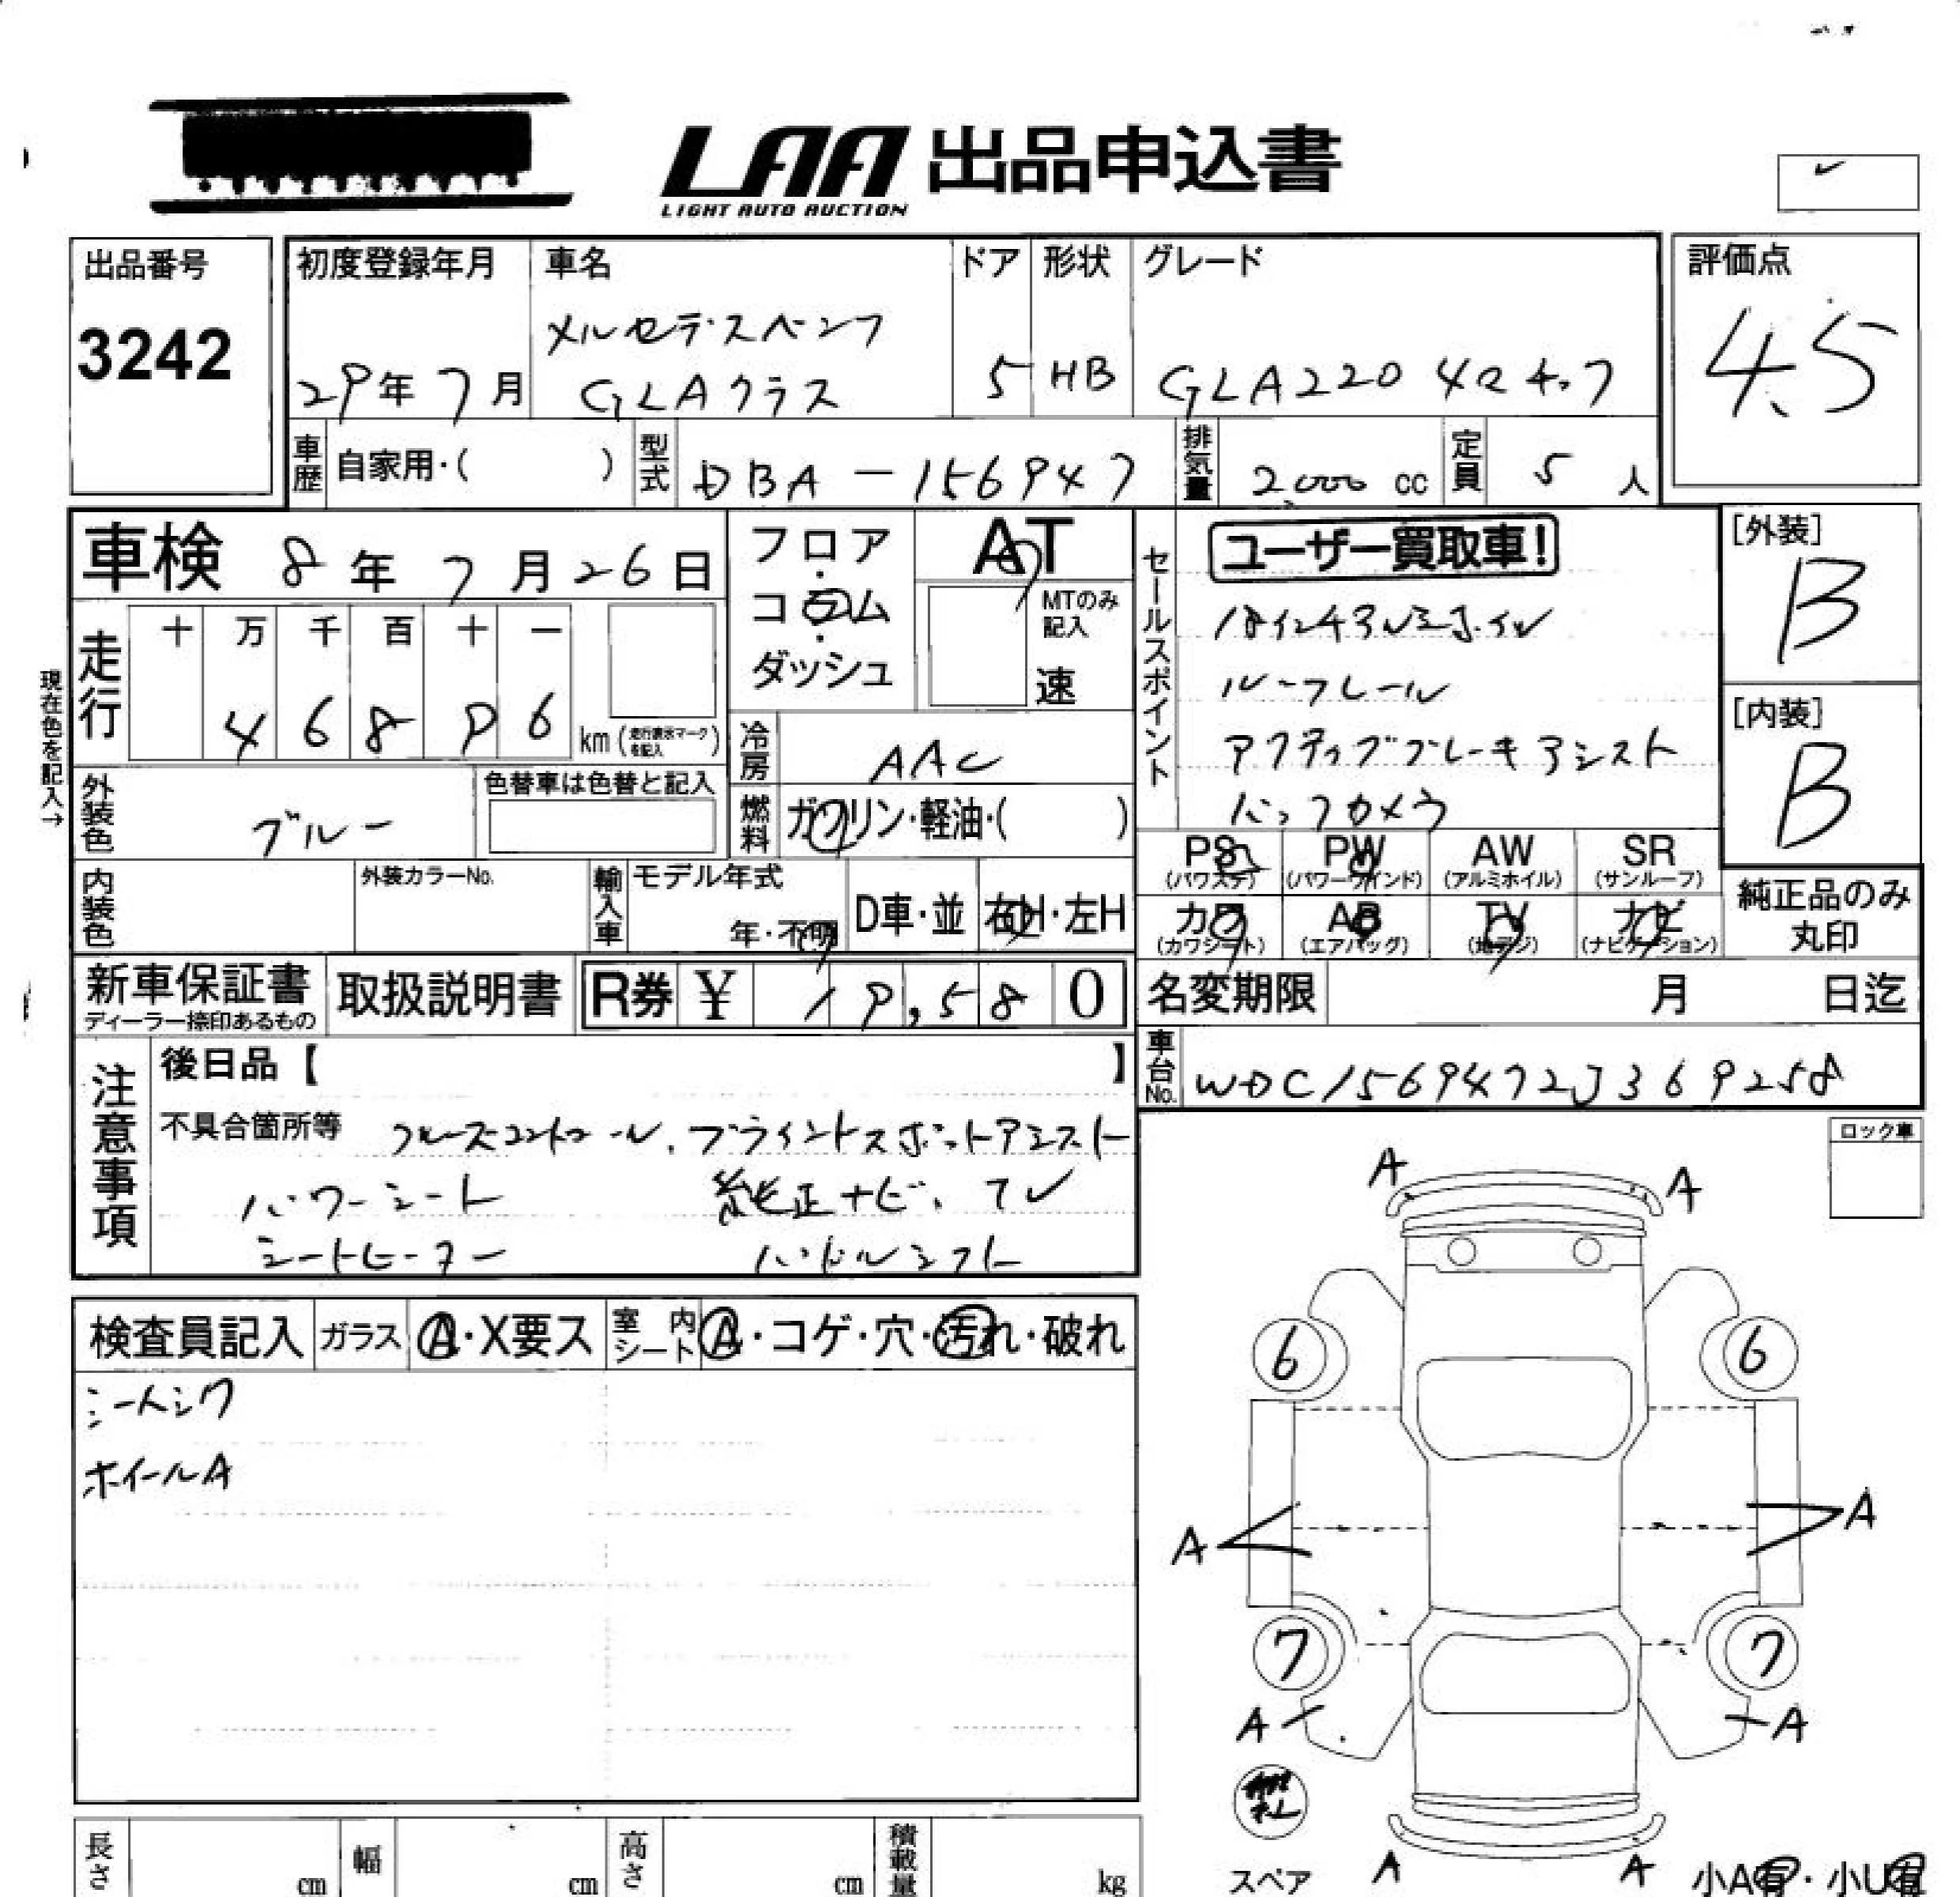 LAA 出品申込書
LIGHT AUTO AUCTION
出品番号
3242
初度登録年月
29年 7月
車名
メルセデスベンツ
GLAクラス
ドア
5
形状
HB
グレード
GLA220 4マチック
評価点
4.5
車歴 自家用・( )
型式 DBA-156947
排気量 2,000 cc
定員 5 人
車検 8年 7月 26日
フロア・コラム・ダッシュ
AT
MTのみ記入
速
セールスポイント
ユーザー買取車!
18インチアルミホイル
ルーフレール
アクティブブレーキアシスト
バックカメラ
[外装]
B
[内装]
B
現在色を記入→
走行
十 万 千 百 十 一
4 6 8 9 6 km (走行表示マークを記入)
冷房 AAC
外装色 ブルー
色替車は色替と記入
燃料 ガソリン・軽油・( )
PS (パワステ)
PW (パワーウインド)
AW (アルミホイル)
SR (サンルーフ)
内装色
外装カラーNo.
輸入車
モデル年式
年・不明
D車・並
右H・左H
カワ (カワシート)
AB (エアバッグ)
TV (地デジ)
ナビ (ナビゲーション)
純正品のみ丸印
新車保証書
ディーラー捺印あるもの
取扱説明書
R券 ¥ 19,580
名変期限 月 日迄
車台No. WDC1569472J369258
注意事項
後日品【 】
不具合箇所等 クルーズコントロール、ブラインドスポットアシスト
パワーシート 純正ナビ、TV
シートヒーター パドルシフト
ロック車
検査員記入 ガラス A・X要ス 室内シート A・コゲ・穴・汚れ・破れ
シートシワ
ホイールA
A A
6 6
A A
7 7
A A
スペア
A A
小A有・小U有
長さ cm 幅 cm 高さ cm 積載量 kg